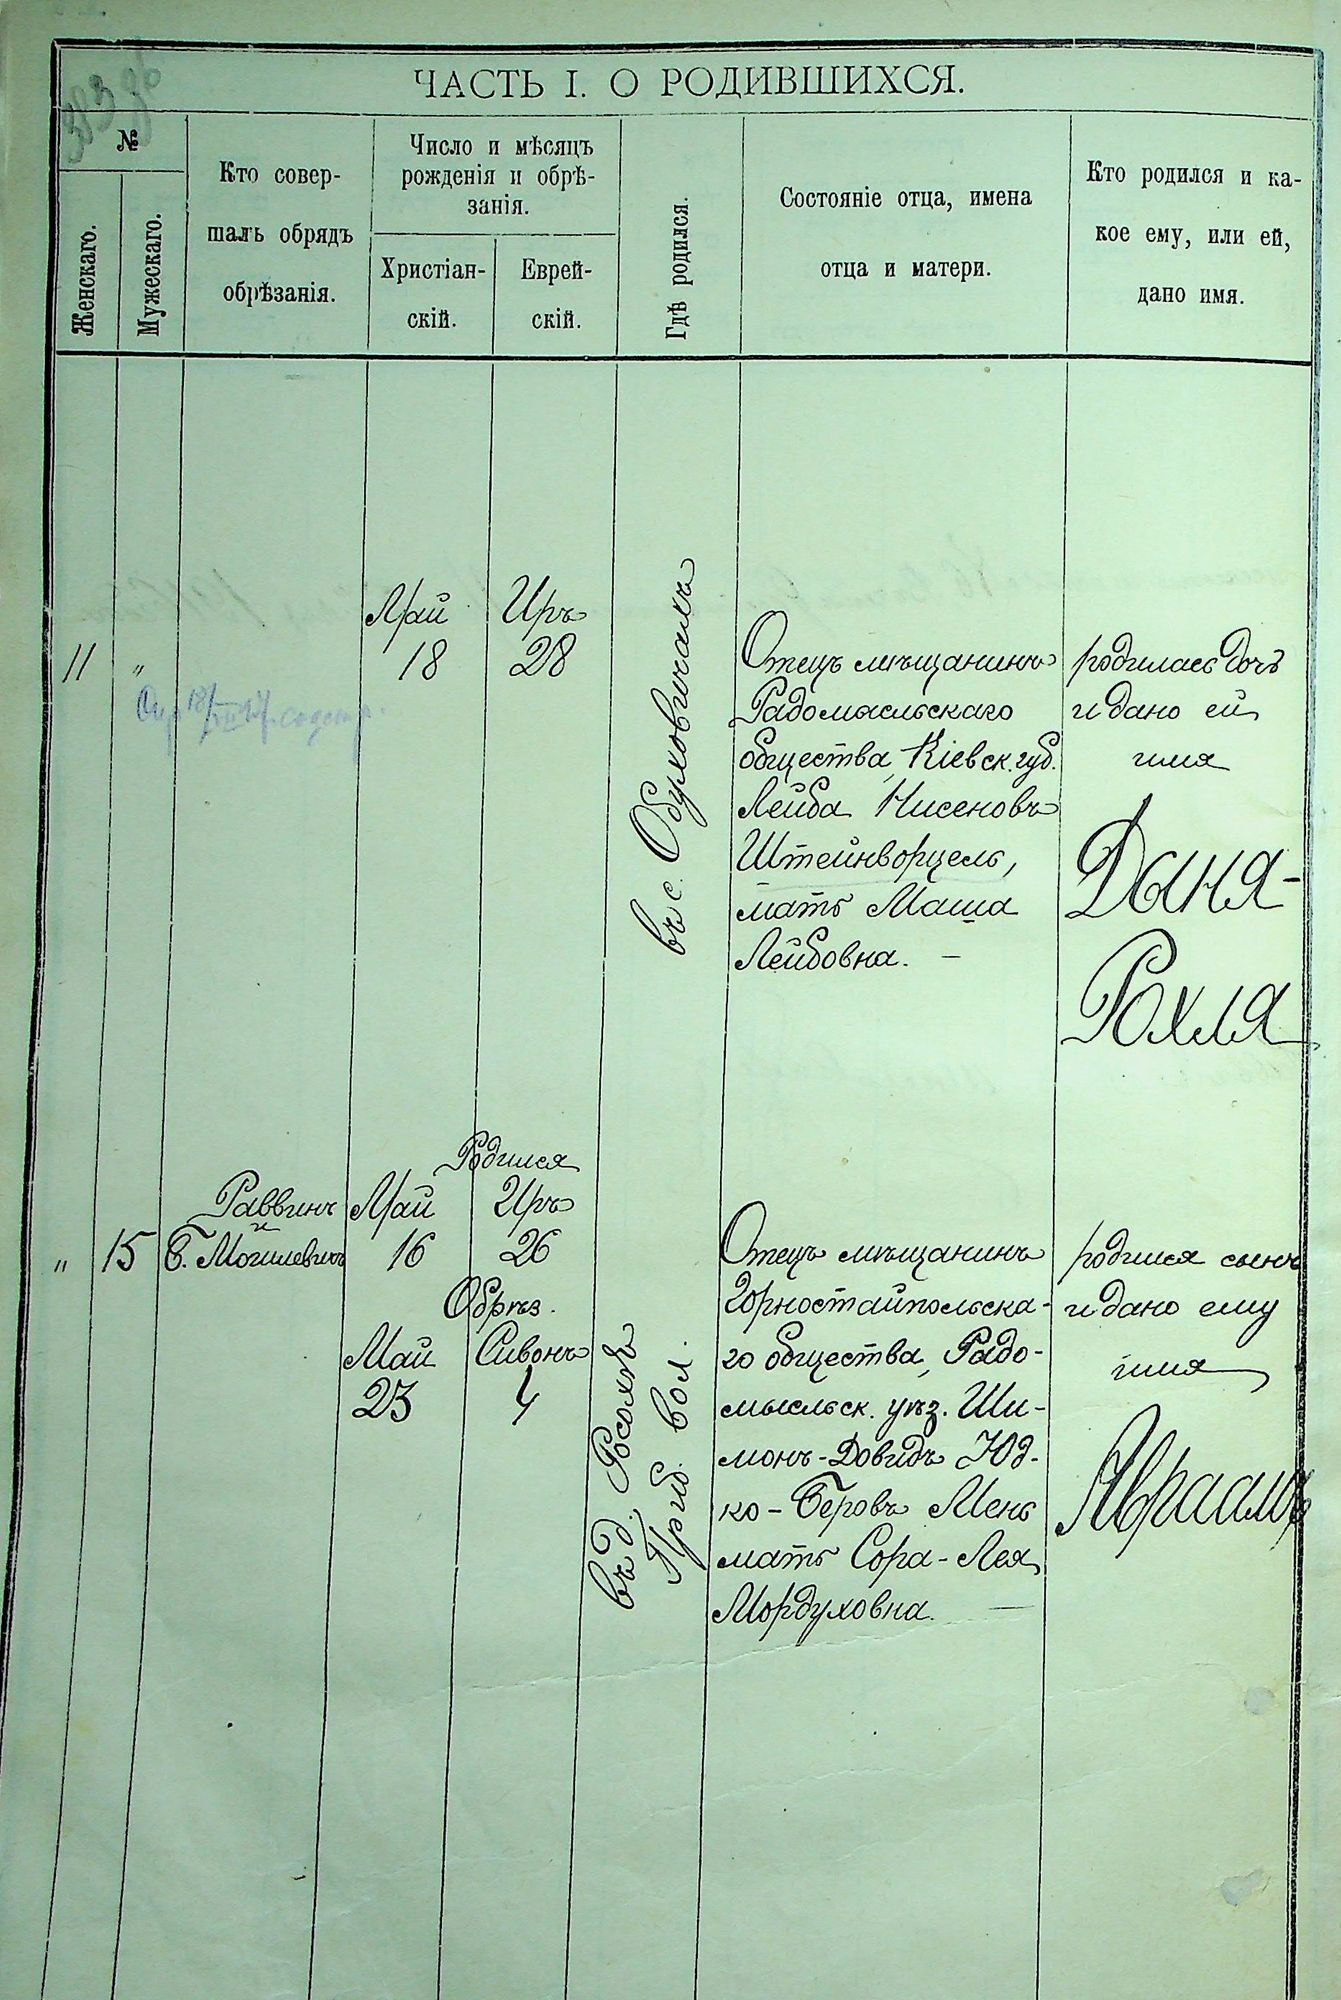 ЧАСТЬ I. О РОДИВШИХСЯ.
№
Женскаго.
Мужескаго.
Кто совер-
шалъ обрядъ
обрѣзанія.
Число и мѣсяцъ
рожденія и обрѣ-
занія.
Христіан-
скій.
Еврей-
скій.
Гдѣ родился.
Состояніе отца, имена
отца и матери.
Кто родился и ка-
кое ему, или ей,
дано имя.
11
"
Май
18
Иръ
28
въ с. Обуховичахъ
Отецъ мѣщанинъ
Радомысльскаго
общества, Кіевск. губ.
Лейба Нисеновъ
Штейнворцель,
мать Маша
Лейбовна. —
родилась дочь
и дано ей
имя
Дыня-
Рохля
"
15
Раввинъ
и
Б. Могилевичъ
Родился
Май
16
Иръ
26
Обрѣз.
Май
23
Сивонъ
4
въ д. Росохѣ
Приб. вол.
Отецъ мѣщанинъ
Горностайпольска-
го общества, Радо-
мысльск. уѣз. Ши-
монъ-Довидъ Юд-
ко-Беровъ Мень
мать Сора-Лея
Мордуховна. —
родился сынъ
и дано ему
имя
Авраамъ